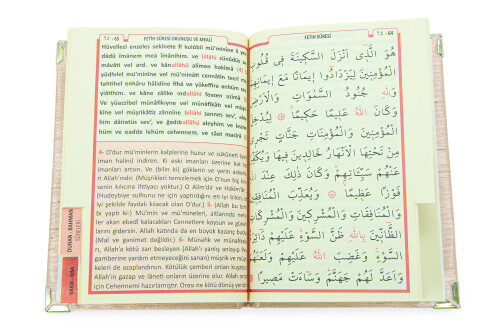 ٦٤ - 65
FETİH SÛRESİ OKUNUŞU VE MEALİ
Hüvellezî enzeles sekînete fî kulûbil mü'minîne liyez
dâdû îmânem mea îmânihim. ve lillâhi cünûdüs se
mâvâti vel ard. ve kânallâhü alîmen hakîmâ (4) Li
yüdhılel mü'minîne vel mü'minâti cennâtin tecrî min
tahtihel enhâru hâlidîne fîhâ ve yükeffira anhüm seyyi
yiâtihim. ve kâne zâlike indallâhi fevzen azîmâ (5)
Ve yüazzibel münâfikıyne vel münâfikâti vel müşri
kîne vel müşrikâtiz zânnîne billâhi zannes sev', aley
him dâiretüs sev', ve ğadıballâhü aleyhim ve leane
hüm ve eadde lehüm cehennem, ve sâet masîrâ
4- O'dur mü'minlerin kalplerine huzur ve sükûneti
iman halini) indiren. Ki eski imanları üzerine kat kat
imanları artsın. Ve (bilin ki) göklerin ve yerin askerle
ri Allah'ındır. (Müşrikleri temizlemek için O'nun hiç kim
senin kılıcına ihtiyacı yoktur.) O Alîm'dir ve Hakîm'dir.
(Hudeybiye sulhunu ne için yaptırdığını en iyi bilen, iyi
şekilde faydalı kılacak olan O'dur.) 5- (Allah bu
bi yaptı ki:) Mü'min ve mü'mineleri, altlarında neh
ler akan ebedî kalacakları Cennetlere koysun ve günah
larını gidersin. Allah katında da en büyük kazanç budur.
(Mal ve ganimet değildir) 6- Münafık ve münafıkla
rı, Allah'a kötü zan besleyen (Allah'ı yanlış anlayıp
gamberine yardım etmeyeceğini sanan) müşrik ve müşri
keleri de azaplandırsın. Kötülük çemberi onları kuşatsın
Allah'ın gazap ve lâneti onların üzerine olur. Allah
için Cehennemi hazırlamıştır. Orası ne kötü dönüş yeri
DUHAN - RAHMAN
SÛRELERİ
FETİH SÛRESİ
٦٤ - 64
هُوَ الَّذ۪ٓي اَنْزَلَ السَّك۪ينَةَ ف۪ي قُلُوبِ
الْمُؤْمِن۪ينَ لِيَزْدَادُٓوا ا۪يمَانًا مَعَ ا۪يمَانِهِمْ
وَلِلّٰهِ جُنُودُ السَّمٰوَاتِ وَالْاَرْضِ
وَكَانَ اللّٰهُ عَل۪يمًا حَك۪يمًا لِيُدْخِلَ
الْمُؤْمِن۪ينَ وَالْمُؤْمِنَاتِ جَنَّاتٍ تَجْر۪ي
مِنْ تَحْتِهَا الْاَنْهَارُ خَالِد۪ينَ ف۪يهَا وَيُكَفِّرَ
عَنْهُمْ سَيِّـَٔاتِهِمْ وَكَانَ ذٰلِكَ عِنْدَ اللّٰهِ
فَوْزًا عَظ۪يمًا وَيُعَذِّبَ الْمُنَافِق۪ينَ
وَالْمُنَافِقَاتِ وَالْمُشْرِك۪ينَ وَالْمُشْرِكَاتِ
الظَّٓانّ۪ينَ بِاللّٰهِ ظَنَّ السَّوْءِ عَلَيْهِمْ دَٓائِرَةُ
السَّوْءِ وَغَضِبَ اللّٰهُ عَلَيْهِمْ وَلَعَنَهُمْ
وَاَعَدَّ لَهُمْ جَهَنَّمَ وَسَٓاءَتْ مَص۪يرًا